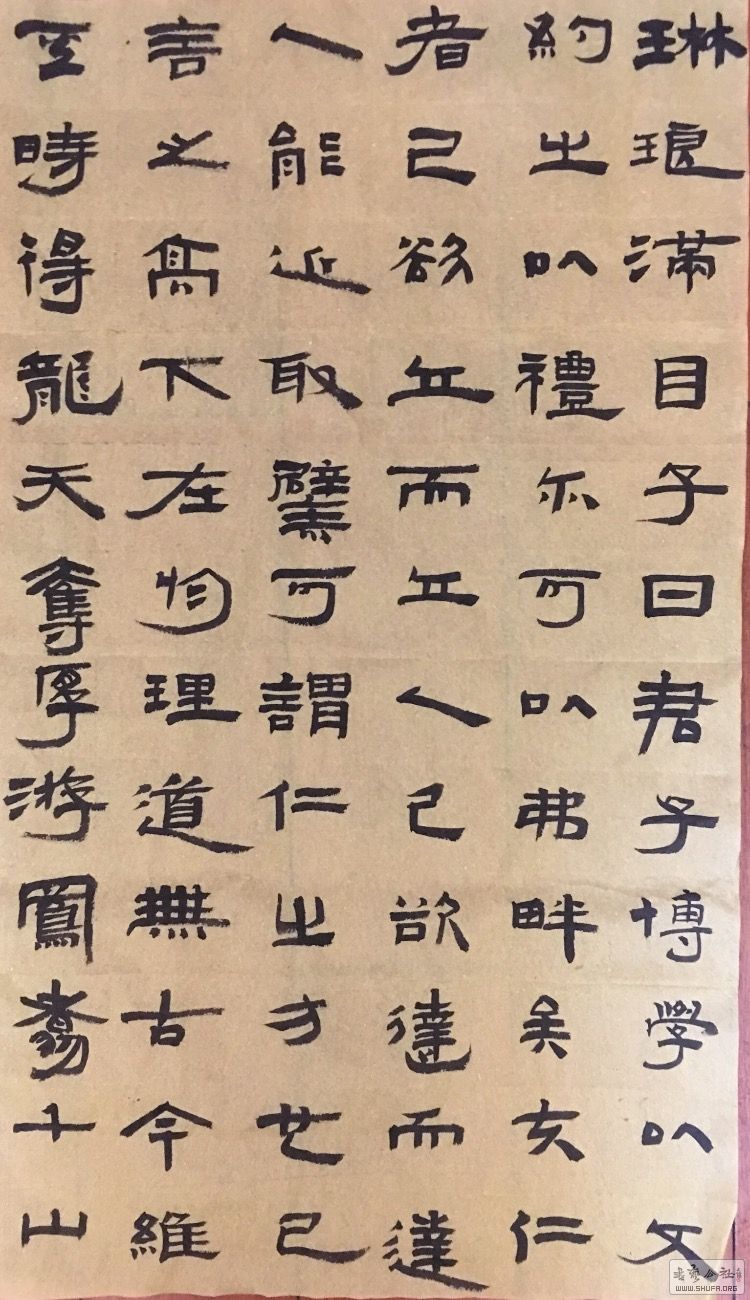 琳琅滿目子曰君子博學以文
約之以禮亦可以弗畔矣夫仁
者己欲立而立人己欲達而達
人能近取譬可謂仁之方也已
言之高下在於理道無古今維
時得龍天奪厚游鳳翥千山
書藝公社
WWW.SHUFA.ORG